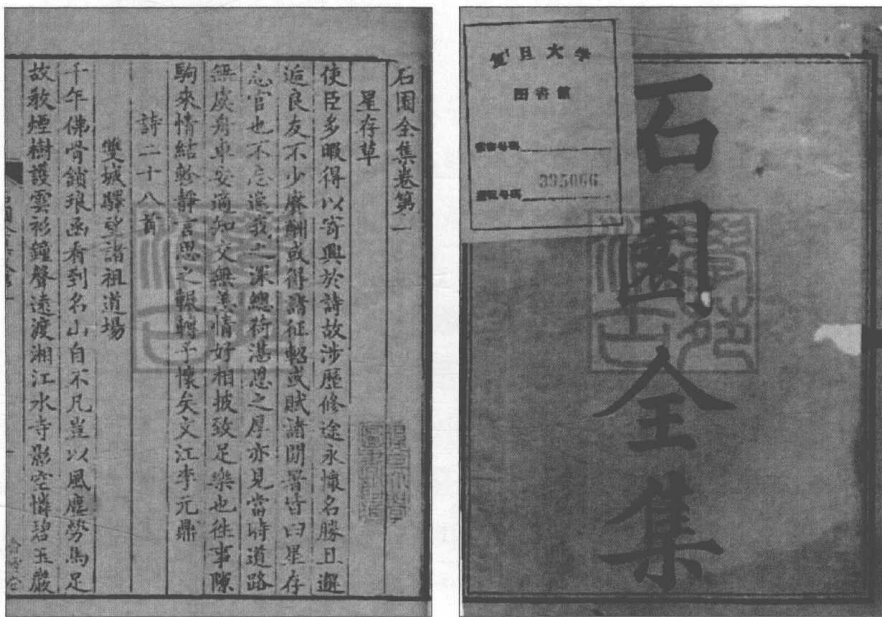 石園全集卷第一
星存草
使臣多暇得以寄興於詩故涉歷修途永懷名勝且邂
逅良友不少賡酬或得諸征軺或賦諸閒署皆曰星存
志官也不忘遠我之深總荷湯恩之厚亦見當時道路
無虞舟車安適知交無恙情好相披致足樂也往事隙
駒來情結軫靜言思之輾轉予懷矣文江李元鼎
詩二十八首
雙城驛望諸祖道場
千年佛骨鎖琅函看到名山自不凡豈以風塵勞馬足
故教煙樹護雲衫鐘聲遠渡湘江水寺影空憐碧玉巖
復旦大學
圖書館
395066
石園全集